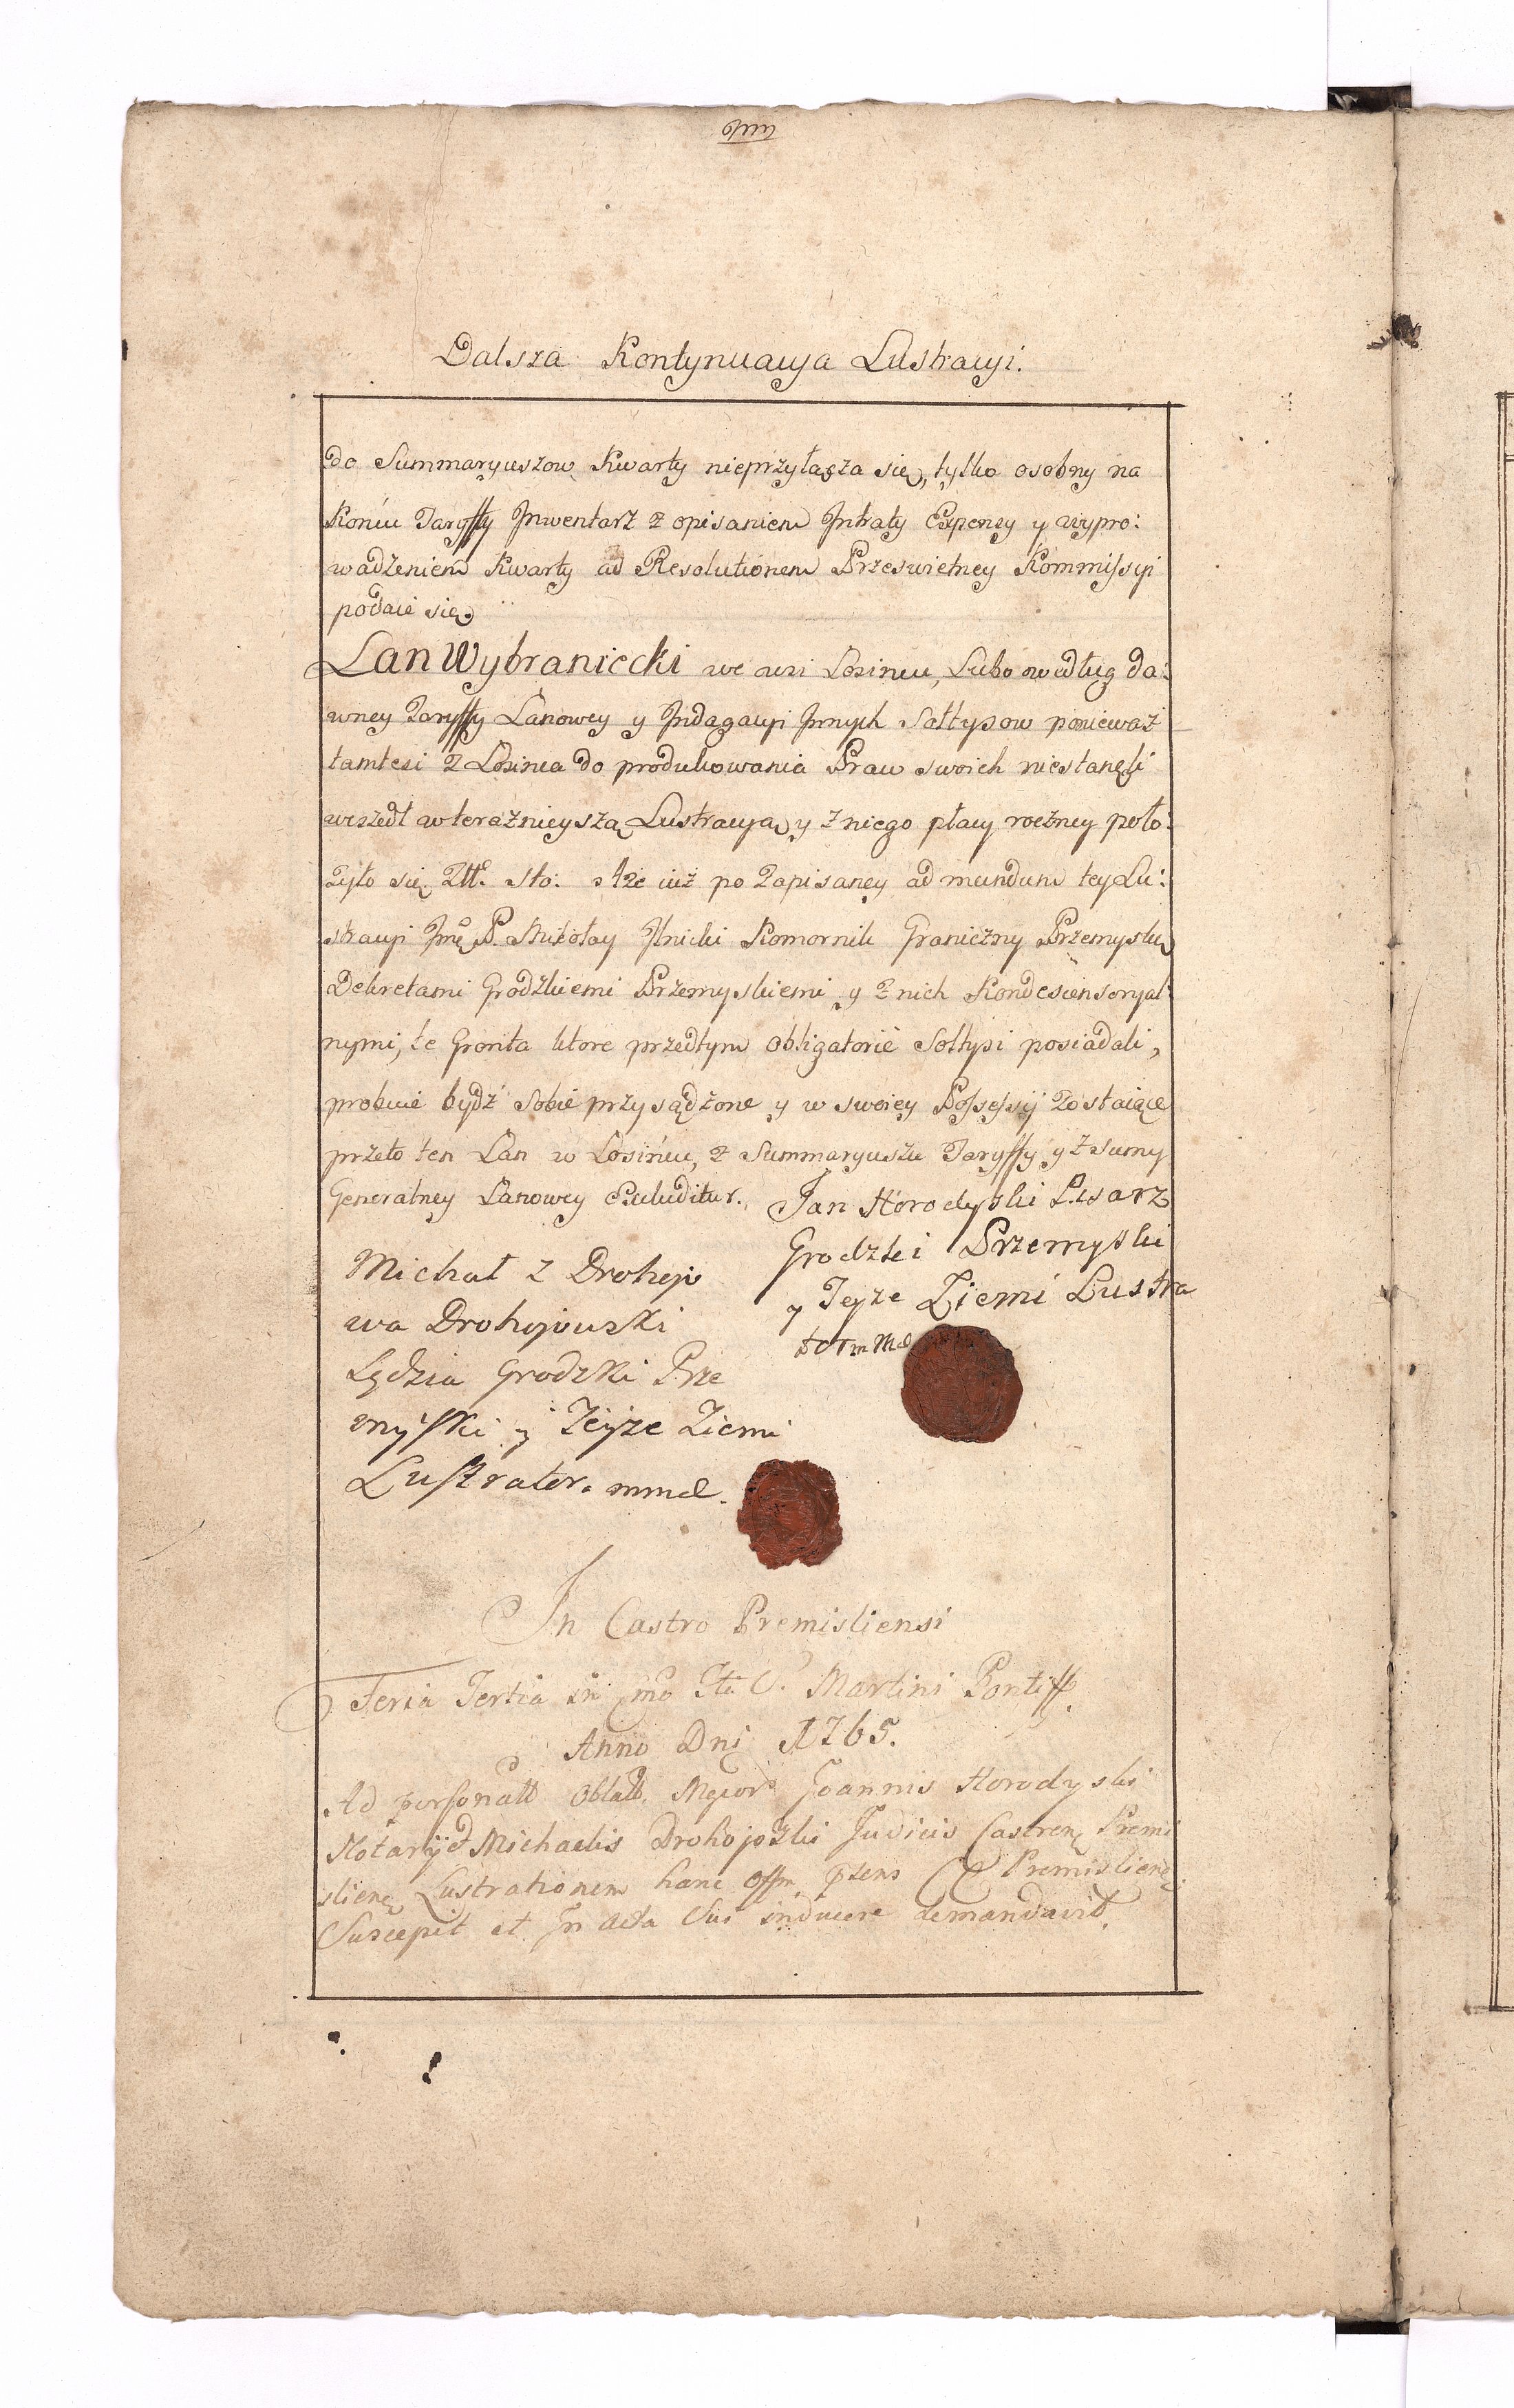 Dalsza Kontynuacya Lustracyi.
do Summaryuszow Kwarty nieprzyłącza się, tylko osobny na
Koncu Taryffy Inwentarz z opisaniem Intraty Expensy y wypro:
wadzeniem Kwarty ad Resolutionem Przeswietney Kommissyi
podaie się
Lan Wybraniecki we wsi Losincu, Lubo według da:
wney Taryffy Lanowey y Indagacyi Innych Sołtysow ponieważ
tamtesi z Losinca do produkowania Praw swoich niestaneli
wszedł w teraznieyszą Lustracyą y z niego płacy roczney poło:
zyło się Złł. sto: Aże iuż po Zapisaney ad mundum tey Lu:
stracyi Jmć P. Mikołay Ilnicki Komornik Graniczny Przemyslu
Dekretami Grodzkiemi Przemyskiemi y z nich Kondescensoryal
nymi, te Gronta ktore przedtym obligatorie Sołtysi posiadali,
probuie bydź sobie przysądzone y w swoiey Possessyi Zostaiące
przeto ten Lan w Losińcu, z Summaryuszu Taryffy y z sumy
Generalney Lanowey Excluditur.
Jan Horodyski Pisarz
Grodzki Przemyski
y Teyze Ziemi Lustra
tor m
Michał z Drohojo
wa Drohojowski
Sędzia Grodzki Prze
myſki y Teyze Ziemi
Luſtrator.
In Castro Premisliensi
Feria Tertia in Martini Pontiff.
Anno Dni 1765.
Ad personalē Oblatē. Joannis Horodyski
Notarij & Michaelis Drohojozki Judicis Castren Premi
slien Lustrationem hanc Offm Premislien
Suscepit et In Acta Sui inducere demandavit.